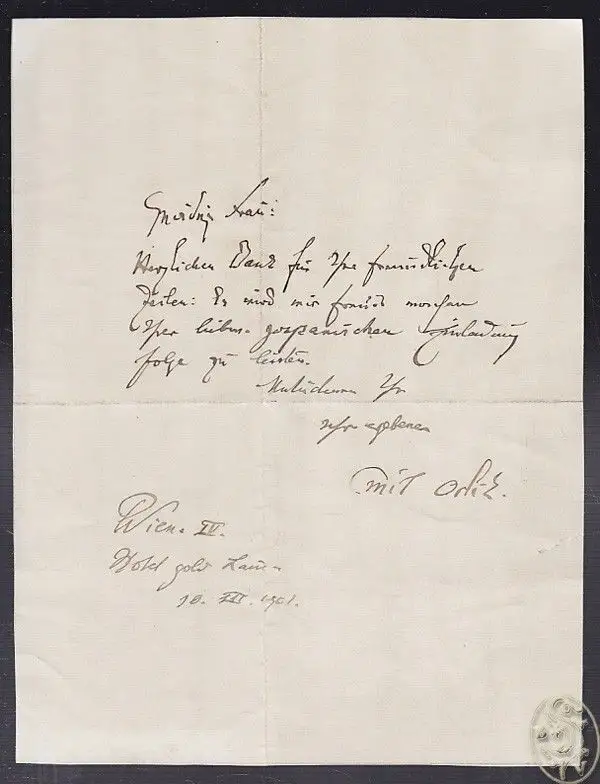 Gnädige Frau:
Herzlichen Dank für Ihre freundlichen
Zeilen: Es wird mir Freude machen
Ihrer liebens- Einladung
folge zu leisten.
Ihr
sehr ergebener
Emil Orlik.
Wien. IV.
Hotel gold. Lamm
10. III. 1901.